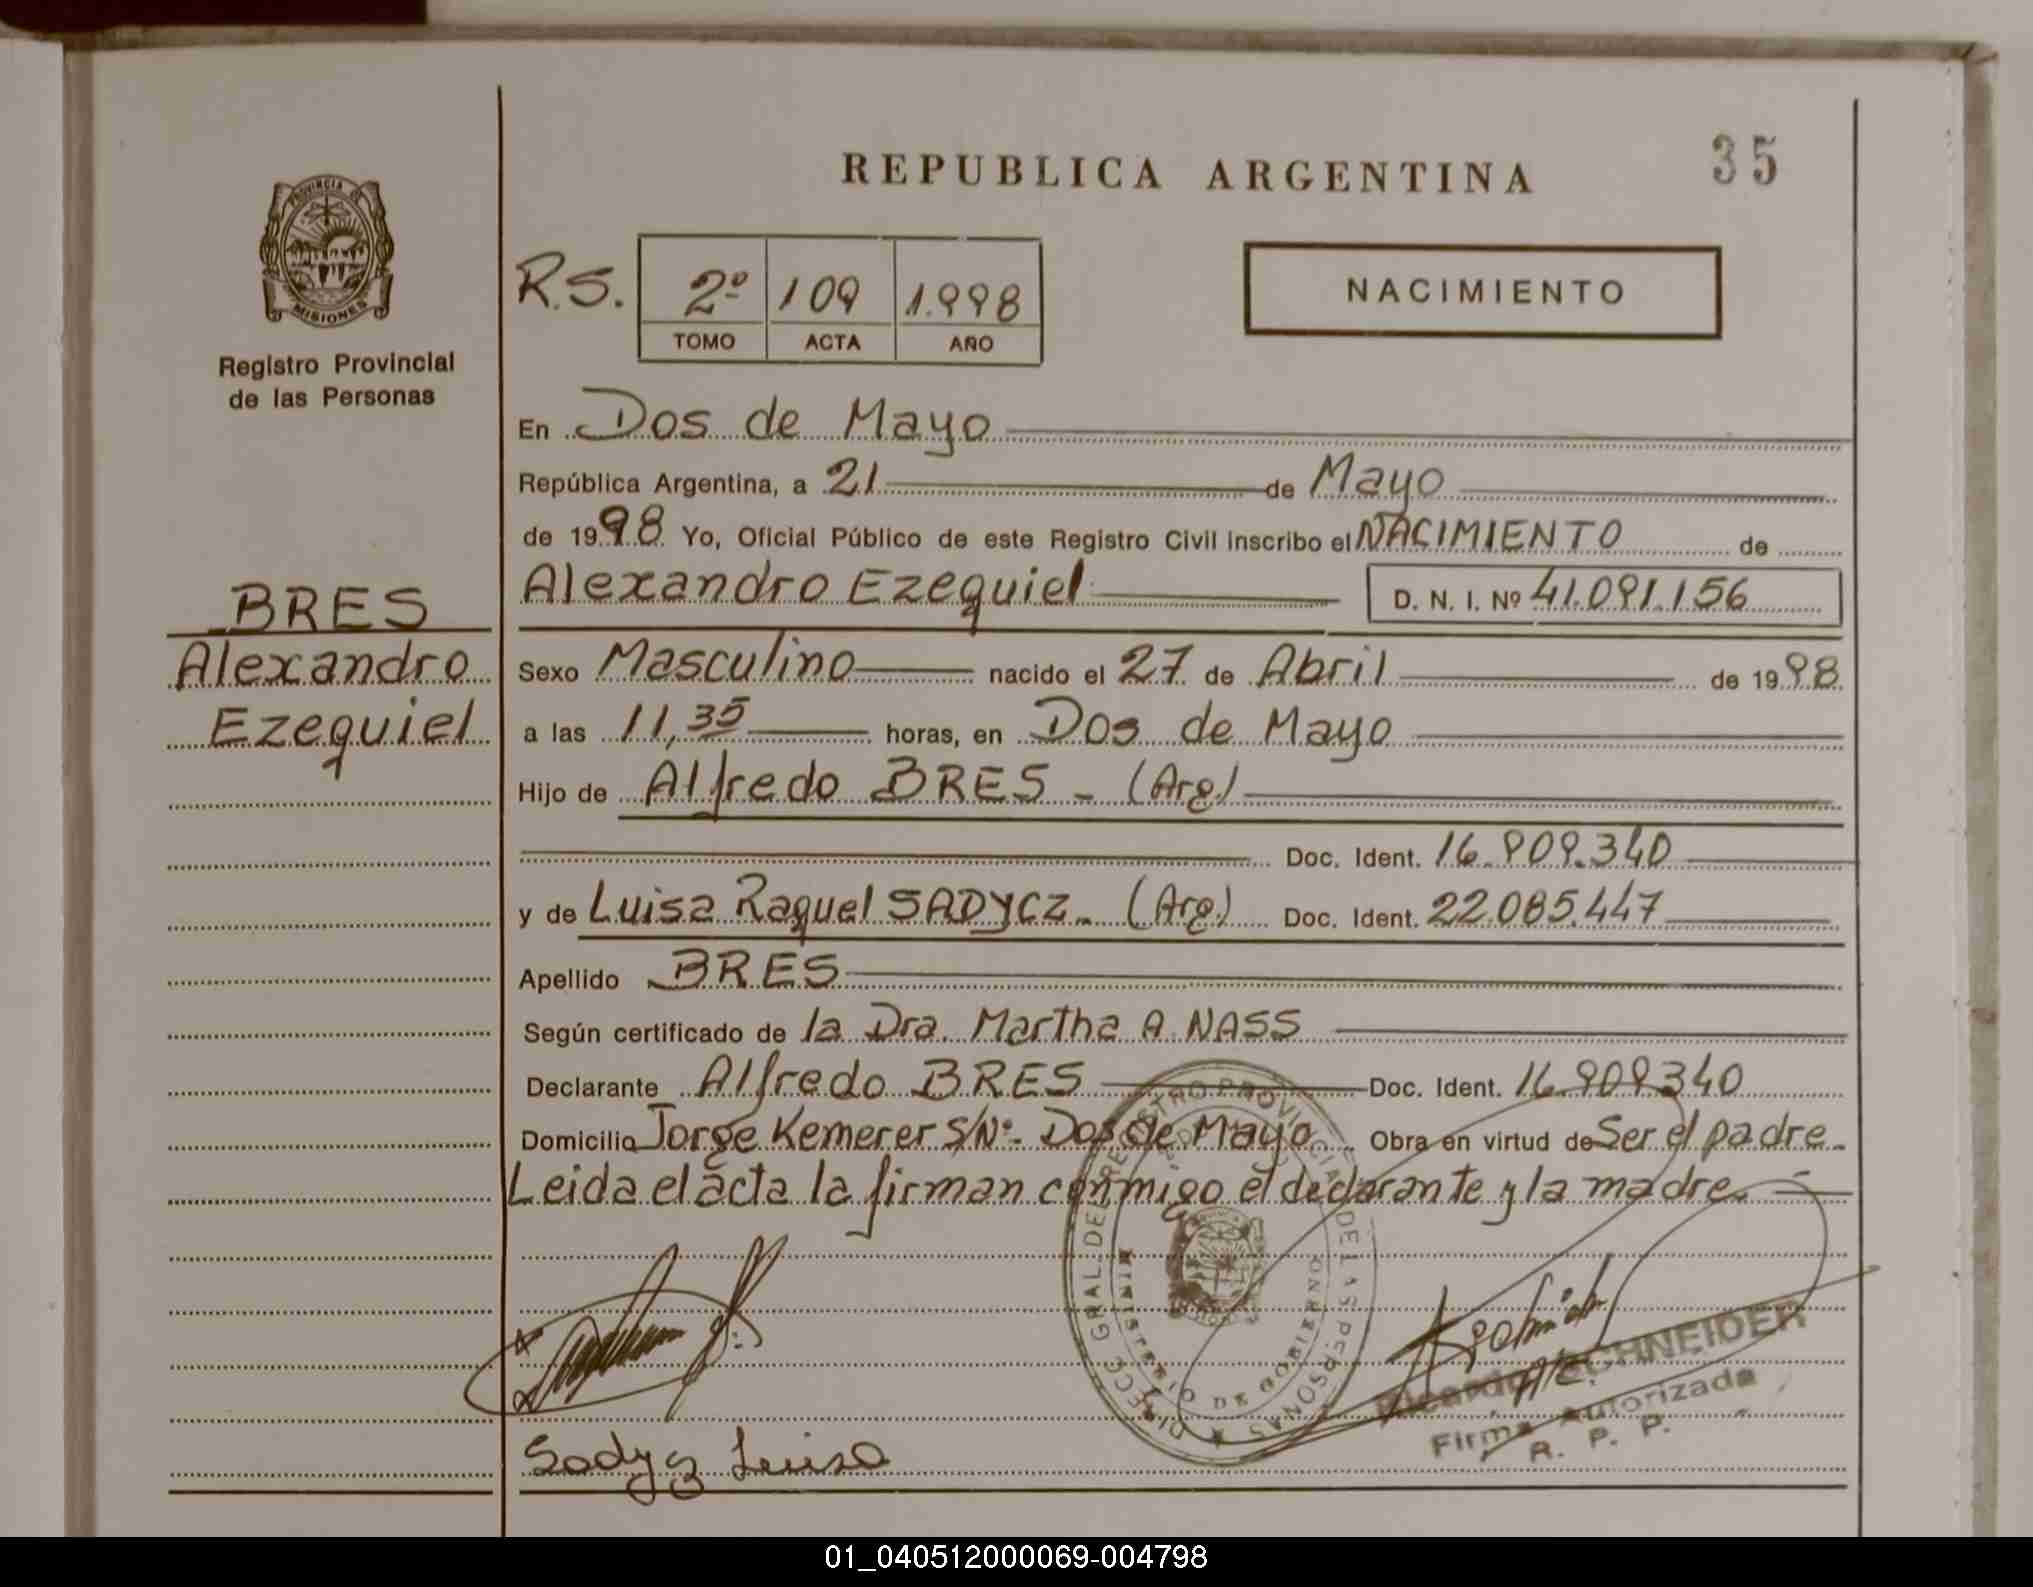 REPUBLICA ARGENTINA
35
PROVINCIA DE
MISIONES
Registro Provincial
de las Personas
R.S.
2º 109 1.998
TOMO ACTA AÑO
NACIMIENTO
En Dos de Mayo
República Argentina, a 21 de Mayo
de 1998 Yo, Oficial Público de este Registro Civil inscribo el NACIMIENTO de
Alexandro Ezequiel D. N. I. Nº 41.091.156
BRES
Alexandro
Ezequiel
Sexo Masculino nacido el 27 de Abril de 1998
a las 11,35 horas, en Dos de Mayo
Hijo de Alfredo BRES - (Arg)
Doc. Ident. 16.909.340
y de Luisa Raquel SADYCZ - (Arg) Doc. Ident. 22.085.447
Apellido BRES
Según certificado de la Dra. Martha A. NASS
Declarante Alfredo BRES Doc. Ident. 16.909.340
Domicilio Jorge Kemerer S/Nº - Dos de Mayo Obra en virtud de Ser el padre -
Leida el acta la firman conmigo el declarante y la madre. -
DIRECC GRAL. DEL REGISTRO PROVINCIAL DE LAS PERSONAS
MINISTERIO DE GOBIERNO
Ricardo SCHNEIDER
Firma Autorizada
R. P. P.
Sadycz Luisa
01_040512000069-004798